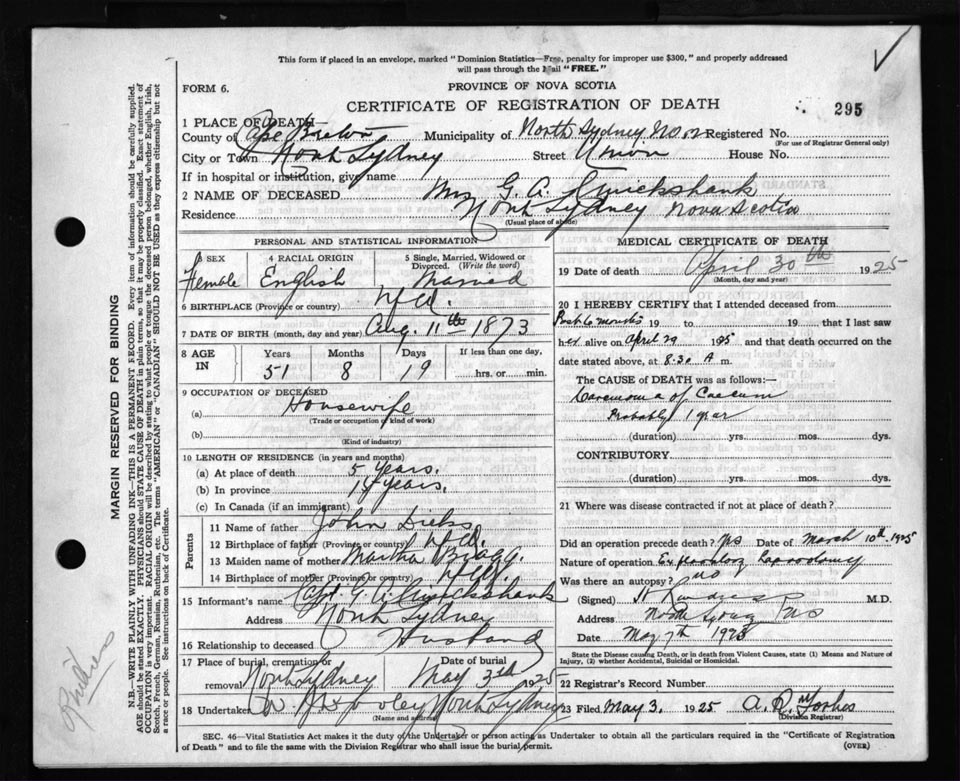 This form if placed in an envelope, marked "Dominion Statistics—Free, penalty for improper use $300," and properly addressed
will pass through the Mail "FREE."
FORM 6.
PROVINCE OF NOVA SCOTIA
CERTIFICATE OF REGISTRATION OF DEATH
295
1 PLACE OF DEATH—
County of Cape Breton Municipality of North Sydney Registered No.
(For use of Registrar General only)
City or Town North Sydney Street Union House No.
If in hospital or institution, give name
2 NAME OF DECEASED Mrs G. A. Cruickshank
Residence North Sydney Nova Scotia
(Usual place of abode)
PERSONAL AND STATISTICAL INFORMATION
3 SEX Female
4 RACIAL ORIGIN English
5 Single, Married, Widowed or Divorced. (Write the word) Married
6 BIRTHPLACE (Province or country) Nfld.
7 DATE OF BIRTH (month, day and year) Aug. 11th 1873
8 AGE IN Years 51 Months 8 Days 19 If less than one day, hrs. or min.
9 OCCUPATION OF DECEASED
(a) Housewife
(Trade or occupation or kind of work)
(b)
(Kind of industry)
10 LENGTH OF RESIDENCE (in years and months)
(a) At place of death 5 years.
(b) In province 14 years.
(c) In Canada (if an immigrant)
Parents
11 Name of father John Dicks
12 Birthplace of father (Province or country) Nfld.
13 Maiden name of mother Martha Bragg.
14 Birthplace of mother (Province or country) Nfld.
15 Informant's name Capt. G. A. Cruickshank
Address North Sydney
16 Relationship to deceased Husband
17 Place of burial, cremation or removal North Sydney Date of burial May 3rd 1925
18 Undertaker North Sydney
(Name and address)
MEDICAL CERTIFICATE OF DEATH
19 Date of death April 30th 1925
(Month, day and year)
20 I HEREBY CERTIFY that I attended deceased from
Past 6 months 19 to 19 that I last saw
her alive on April 29 1925 and that death occurred on the
date stated above, at 8.30 A m.
The CAUSE of DEATH was as follows:—
Carcinoma of Caecum
Probably 1 year
(duration) yrs. mos. dys.
CONTRIBUTORY.
(duration) yrs. mos. dys.
21 Where was disease contracted if not at place of death?
Did an operation precede death? Date of March 10th 1925
Nature of operation Exploratory Laparotomy
Was there an autopsy? no
(Signed) M.D.
Address North Sydney NS
Date May 7th 1925
State the Disease causing Death, or in death from Violent Causes, state (1) Means and Nature of
Injury, (2) whether Accidental, Suicidal or Homicidal.
22 Registrar's Record Number
23 Filed May 3. 1925 A. R. Forbes
(Division Registrar)
SEC. 46—Vital Statistics Act makes it the duty of the Undertaker or person acting as Undertaker to obtain all the particulars required in the "Certificate of Registration
of Death" and to file the same with the Division Registrar who shall issue the burial permit.
(OVER)
MARGIN RESERVED FOR BINDING
N.B.—WRITE PLAINLY WITH UNFADING INK—THIS IS A PERMANENT RECORD. Every item of information should be carefully supplied.
AGE should be stated EXACTLY. PHYSICIANS should STATE CAUSE OF DEATH in plain terms, so that it may be properly classified. Exact statement of
OCCUPATION is very important. RACIAL ORIGIN will be described by stating to what people or tongue the deceased person belonged, whether English, Irish,
Scotch, French, German, Russian, Ruthenian, etc. The terms "AMERICAN" or "CANADIAN" SHOULD NOT BE USED as they express citizenship but not
a race or people. See instructions on back of Certificate.